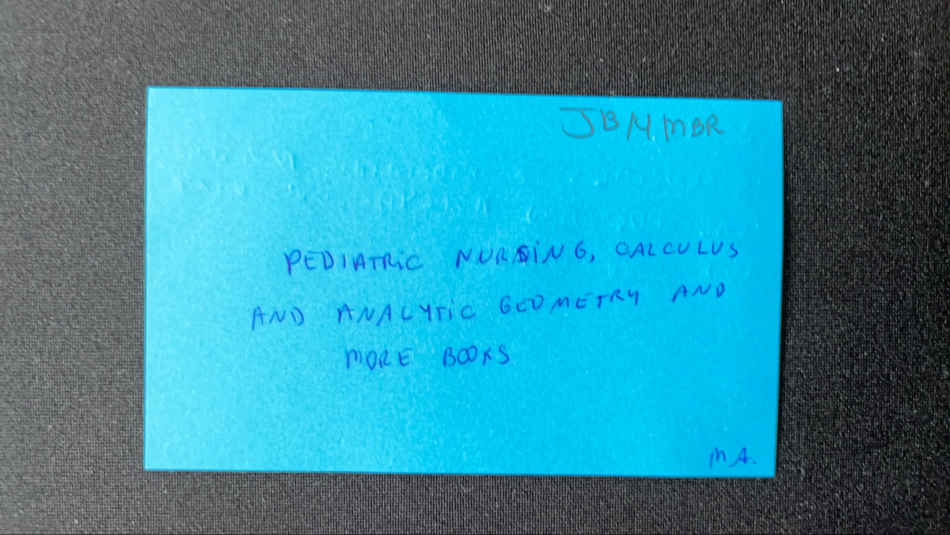 JBM, MBR
PEDIATRIC NURSING, CALCULUS
AND ANALYTIC GEOMETRY AND
MORE BOOKS
M A.